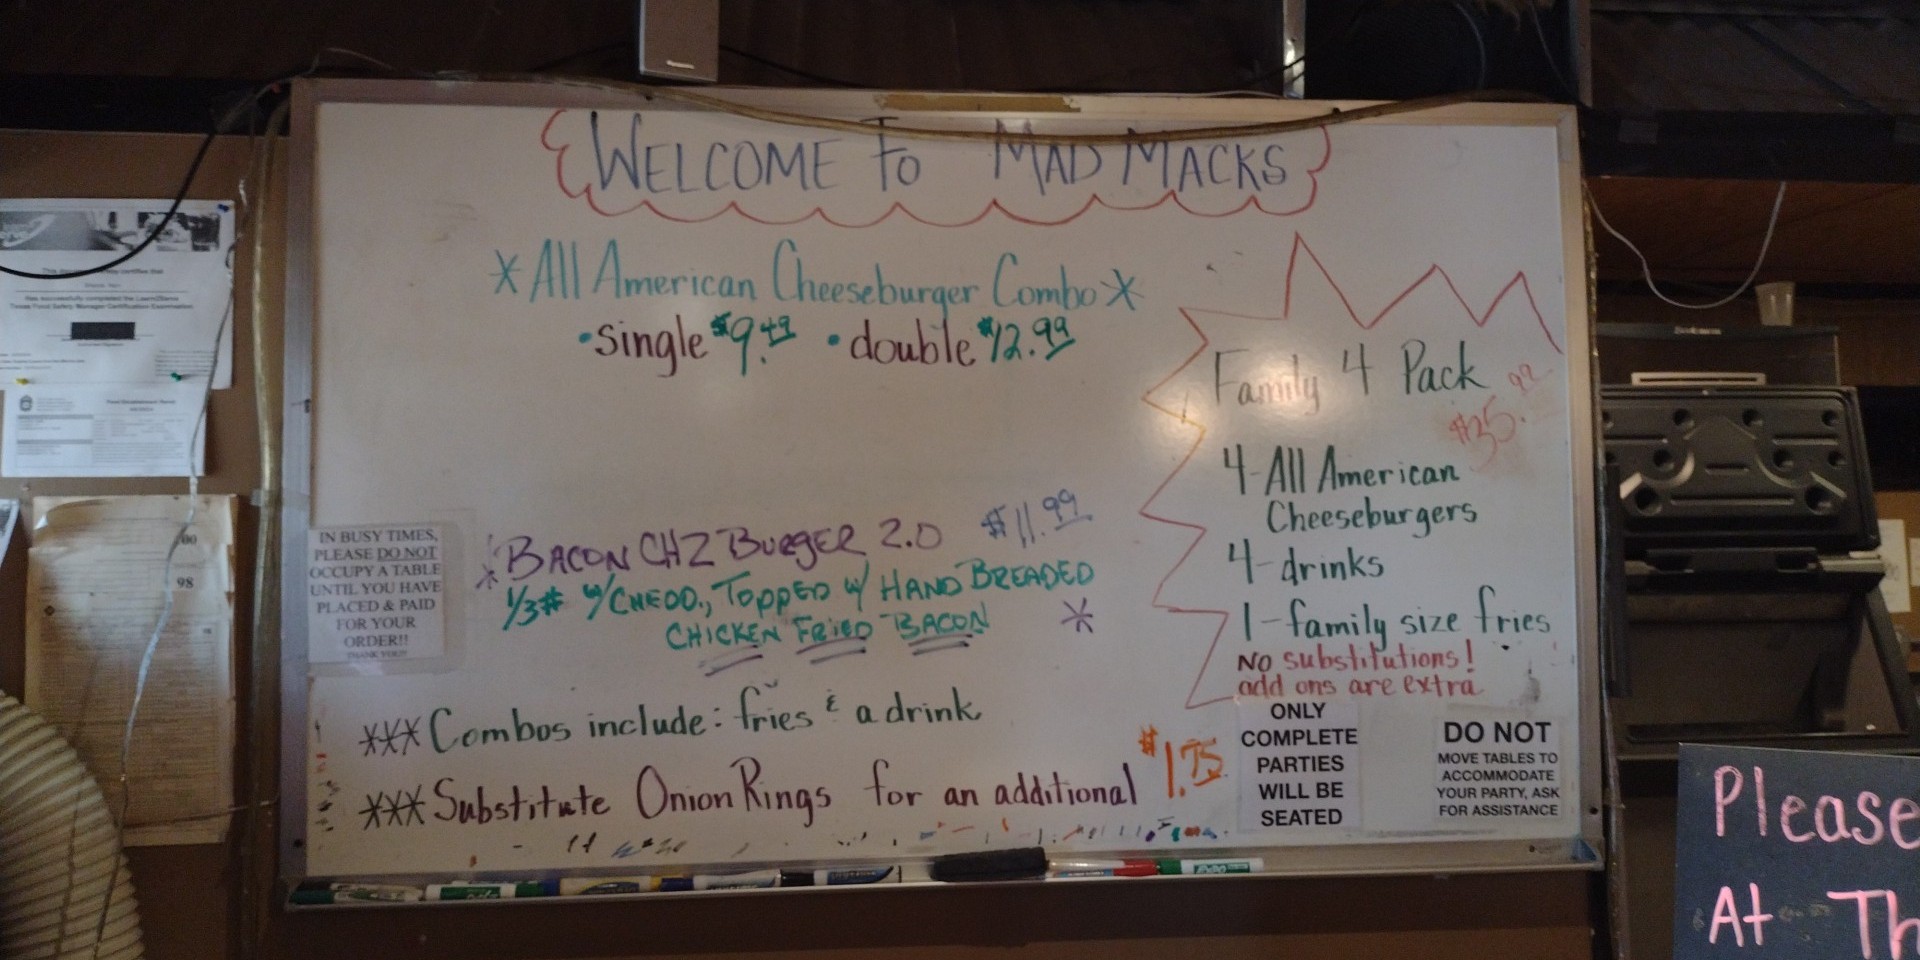 WELCOME to MAD MACKS
*All American Cheeseburger Combo*
•single $9.49 •double $12.99
Family 4 Pack
$35.99
4-All American
Cheeseburgers
4-drinks
1-family size fries
No substitutions!
add ons are extra
*BACON CHZ BURGER 2.0 $11.99
1/3# w/CHEDD., TOPPED w/ HAND BREADED
CHICKEN FRIED BACON *
IN BUSY TIMES,
PLEASE DO NOT
OCCUPY A TABLE
UNTIL YOU HAVE
PLACED & PAID
FOR YOUR
ORDER!!
THANK YOU!!
***Combos include: fries & a drink
***Substitute Onion Rings for an additional $1.75
ONLY
COMPLETE
PARTIES
WILL BE
SEATED
DO NOT
MOVE TABLES TO
ACCOMMODATE
YOUR PARTY, ASK
FOR ASSISTANCE
Please
At Th
98